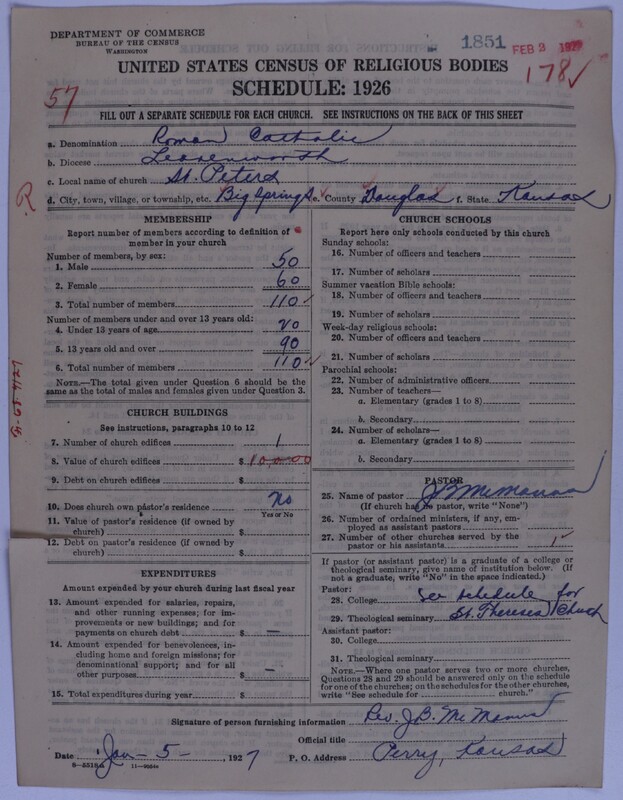 DEPARTMENT OF COMMERCE
BUREAU OF THE CENSUS
WASHINGTON
1851 FEB 3 1927
UNITED STATES CENSUS OF RELIGIOUS BODIES
178 ✓
SCHEDULE: 1926
57
FILL OUT A SEPARATE SCHEDULE FOR EACH CHURCH. SEE INSTRUCTIONS ON THE BACK OF THIS SHEET
a. Denomination Roman Catholic
b. Diocese Leavenworth
c. Local name of church St. Peters
R
d. City, town, village, or township, etc. Big Springs e. County Douglas f. State Kansas
MEMBERSHIP
Report number of members according to definition of
member in your church
Number of members, by sex:
1. Male 50
2. Female 60
3. Total number of members 110 ✓
Number of members under and over 13 years old:
4. Under 13 years of age 20
5. 13 years old and over 90
6. Total number of members 110 ✓
NOTE.—The total given under Question 6 should be the
same as the total of males and females given under Question 3.
CHURCH BUILDINGS
See instructions, paragraphs 10 to 12
7. Number of church edifices 1
8. Value of church edifices $ 10000
9. Debt on church edifices $
10. Does church own pastor's residence No
Yes or No
11. Value of pastor's residence (if owned by
church) $
12. Debt on pastor's residence (if owned by
church) $
EXPENDITURES
Amount expended by your church during last fiscal year
13. Amount expended for salaries, repairs,
and other running expenses; for im-
provements or new buildings; and for
payments on church debt $ —
14. Amount expended for benevolences, in-
cluding home and foreign missions; for
denominational support; and for all
other purposes $ —
15. Total expenditures during year $
CHURCH SCHOOLS
Report here only schools conducted by this church
Sunday schools:
16. Number of officers and teachers
17. Number of scholars
Summer vacation Bible schools:
18. Number of officers and teachers
19. Number of scholars
Week-day religious schools:
20. Number of officers and teachers
21. Number of scholars
Parochial schools:
22. Number of administrative officers
23. Number of teachers—
a. Elementary (grades 1 to 8)
b. Secondary
24. Number of scholars—
a. Elementary (grades 1 to 8)
b. Secondary
PASTOR
25. Name of pastor J B McManus
(If church has no pastor, write "None")
26. Number of ordained ministers, if any, em-
ployed as assistant pastors
27. Number of other churches served by the
pastor or his assistants 1
If pastor (or assistant pastor) is a graduate of a college or
theological seminary, give name of institution below. (If
not a graduate, write "No" in the space indicated.)
Pastor:
28. College See schedule for
29. Theological seminary St. Theresa Church
Assistant pastor:
30. College
31. Theological seminary
NOTE.—Where one pastor serves two or more churches,
Questions 28 and 29 should be answered only on the schedule
for one of the churches; on the schedules for the other churches,
write "See schedule for church."
Signature of person furnishing information Rev. J.B. McManus
Official title
Date Jan - 5 - , 1927 P. O. Address Perry, Kansas